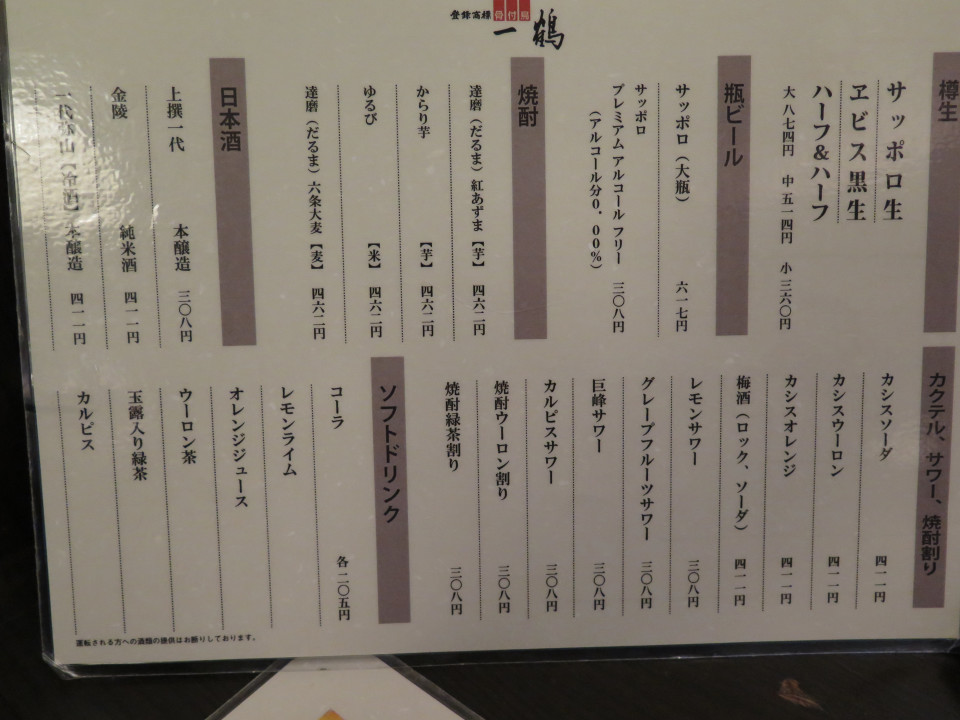 登録商標 骨付鳥
一鶴
樽生
サッポロ生
ヱビス黒生
ハーフ&ハーフ
大 八七四円 中 五一四円 小 三六〇円
瓶ビール
サッポロ(大瓶) 六一七円
サッポロ
プレミアム アルコール フリー 三〇八円
(アルコール分0.00%)
焼酎
達磨(だるま)紅あずま【芋】 四六二円
からり芋 【芋】 四六二円
ゆるび 【米】 四六二円
達磨(だるま)六条大麦【麦】 四六二円
日本酒
上撰一代 本醸造 三〇八円
金陵 純米酒 四一一円
【冷酒】本醸造 四一一円
カクテル、サワー、焼酎割り
カシスソーダ 四一一円
カシスウーロン 四一一円
カシスオレンジ 四一一円
梅酒(ロック、ソーダ) 四一一円
レモンサワー 三〇八円
グレープフルーツサワー 三〇八円
巨峰サワー 三〇八円
カルピスサワー 三〇八円
焼酎ウーロン割り 三〇八円
焼酎緑茶割り 三〇八円
ソフトドリンク
コーラ 各二〇五円
レモンライム
オレンジジュース
ウーロン茶
玉露入り緑茶
カルピス
運転される方への酒類の提供はお断りしております。